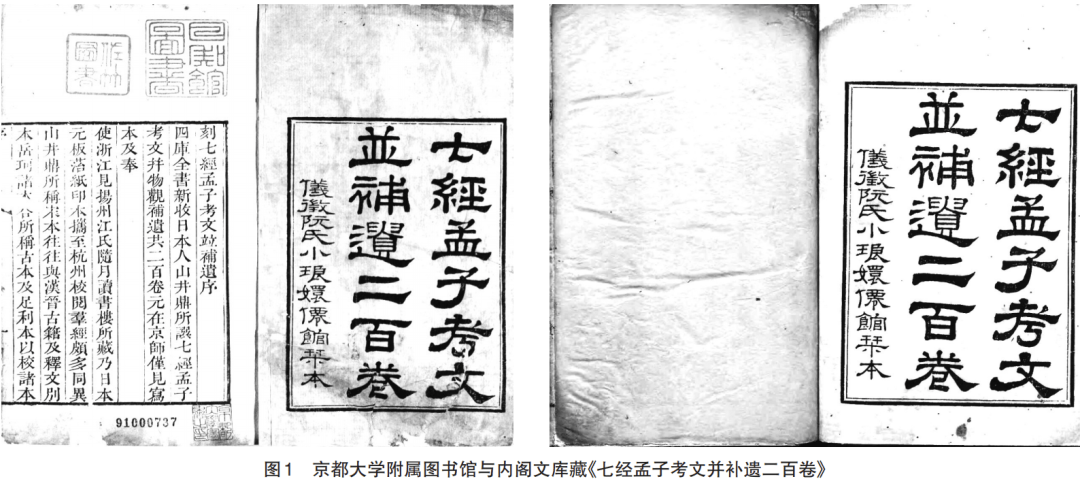 七經孟子考文
並補遺二百卷
儀徵阮氏小琅嬛僊館栞本
刻七經孟子考文竝補遺序
四庫全書新收日本人山井鼎所譔七經孟子
考文并物觀補遺共二百卷元在京師僅見寫
本及奉
使浙江見揚州江氏隨月讀書樓所藏乃日本
元板落紙印本攜至杭州校閱羣經頗多同異
山井鼎所稱宋本往往與漢晉古籍及釋文別
本岳珂諸本合所稱古本及足利本以校諸本
91600737
七經孟子考文
並補遺二百卷
儀徵阮氏小琅嬛僊館栞本
图1 京都大学附属图书馆与内阁文库藏《七经孟子考文并补遗二百卷》